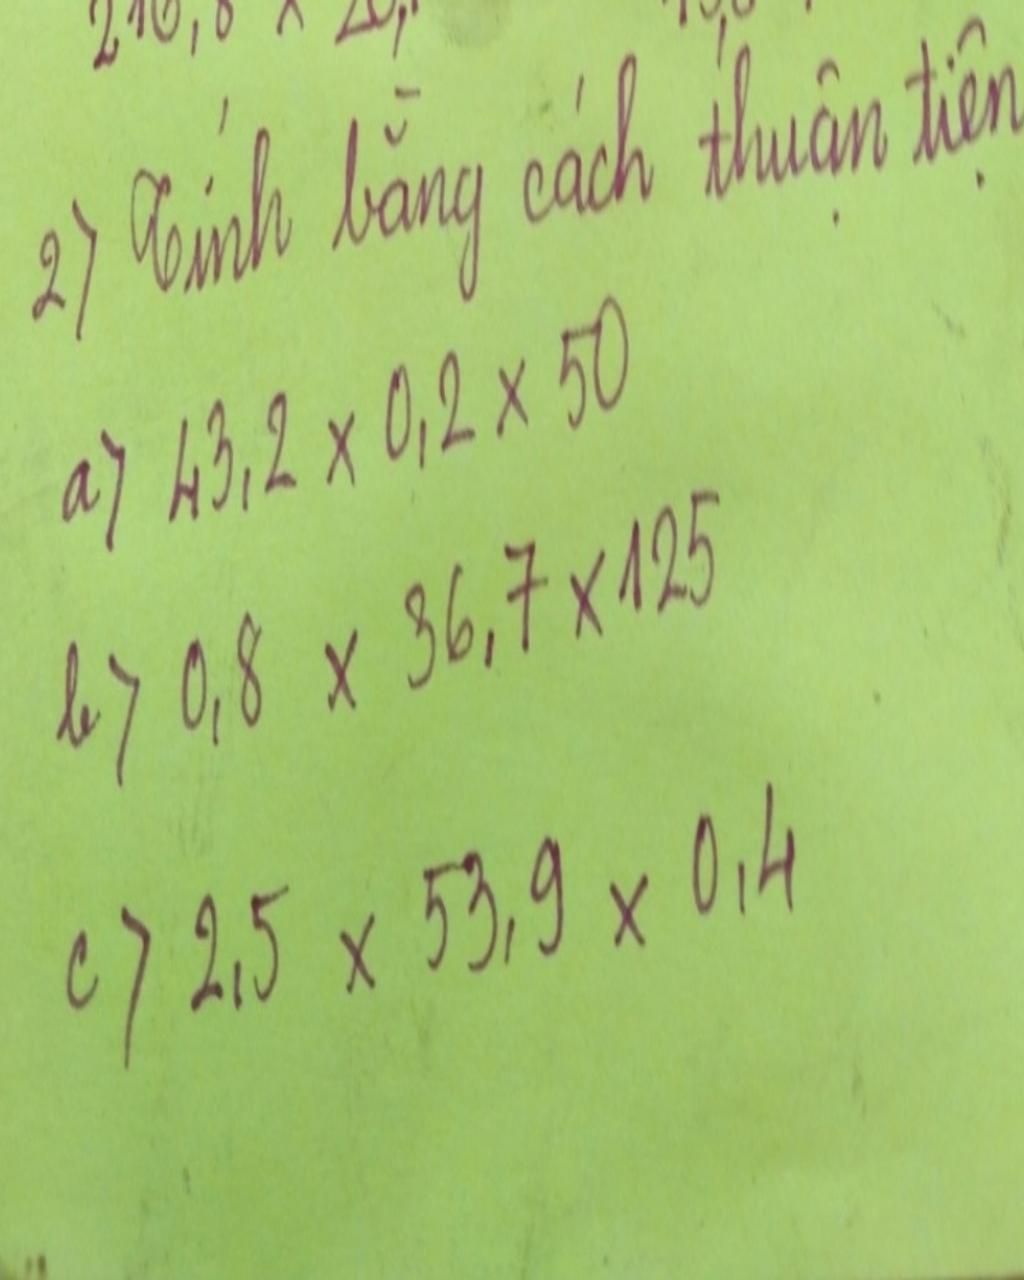 2) Tính bằng cách thuận tiện
a) 43,2 x 0,2 x 50
b) 0,8 x 36,7 x 125
c) 2,5 x 53,9 x 0,4